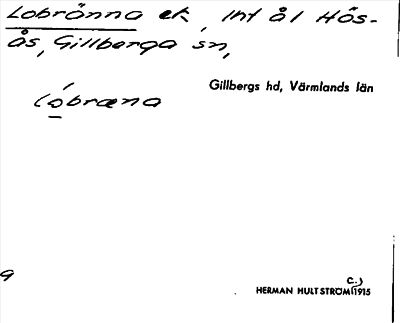 Lobränna ek, Int ål Hös-
ås, Gillberga sn,
Gillbergs hd, Värmlands län
lobræna
9
c.)
HERMAN HULTSTRÖM 1915